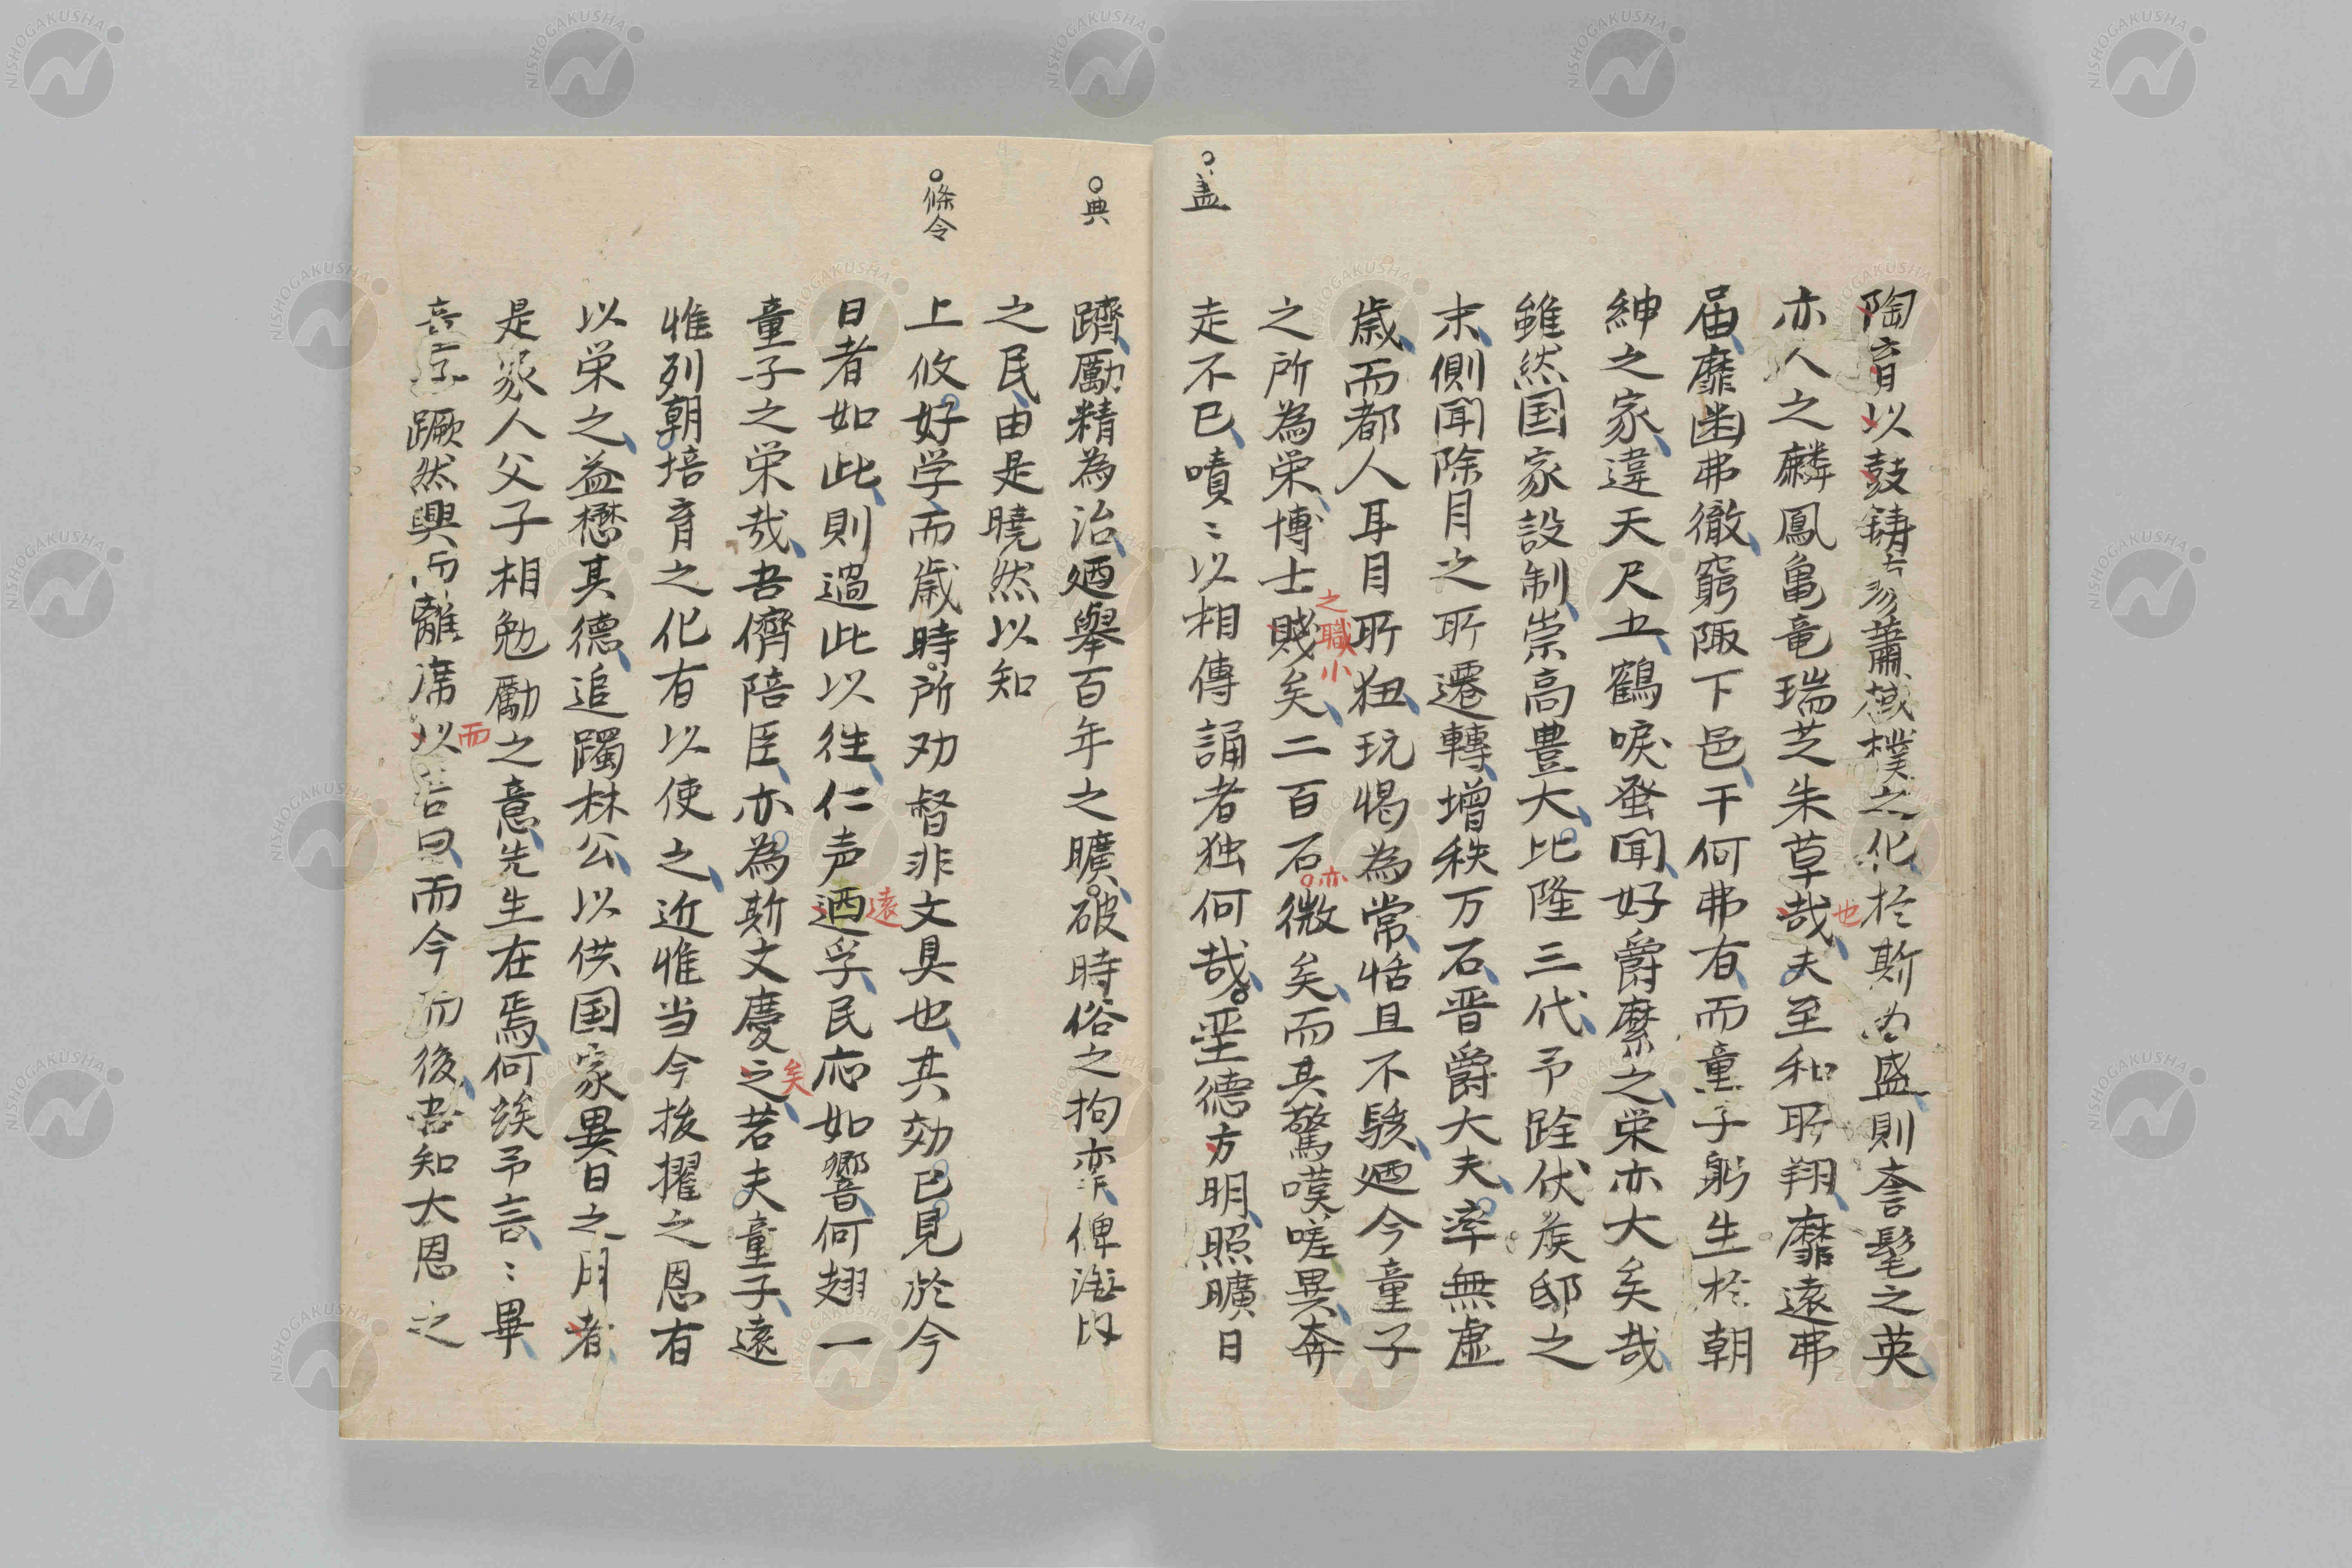 陶育以鼓鋳蕭棫樸之化於斯為盛則耆髦之英
亦人之麟鳳亀竜瑞芝朱草哉也夫至和所翔靡遠弗
届靡幽弗徹窮陬下邑干何弗有而童子躬生於朝
紳之家違天尺五鶴唳蛩聞好爵縻之栄亦大矣哉
雖然国家設制崇高豊大比隆三代予跧伏矦邸之
末側聞除月之所遷轉増秩万石晋爵大夫率無虚
歳而都人耳目所狃玩愒為常恬且不駭廼今童子
之所為栄博士賤之職小矣二百石亦微矣而其驚嘆嗟異奔
走不已嘖〻以相傳誦者独何哉聖德方明照曠日
盡
典
躋勵精為治廼擧百年之曠破時俗之拘牽俾海内
之民由是曉然以知
條令
上攸好学而歳時所劝督非文具也其効已見於今
日者如此則過此以徃仁声迺遠孚民応如響何翅一
童子之栄哉吾儕陪臣亦為斯文慶之矣若夫童子遠
惟列朝培育之化有以使之近惟当今抜擢之恩有
以栄之益懋其德追躅林公以供国家異日之用者
是家人父子相勉勵之意先生在焉何竢予言〻畢
蹶然興而離席以而告曰而今而後吾知大恩之